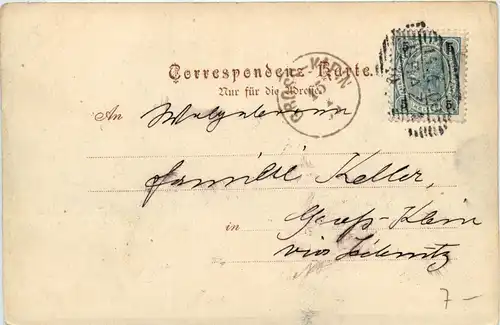 Correspondenz-Karte.
Nur für die Adresse
GROSS KLEIN
An
Familie Keller,
in Groß-Klein
via Leibnitz
7-
5 5
5 5